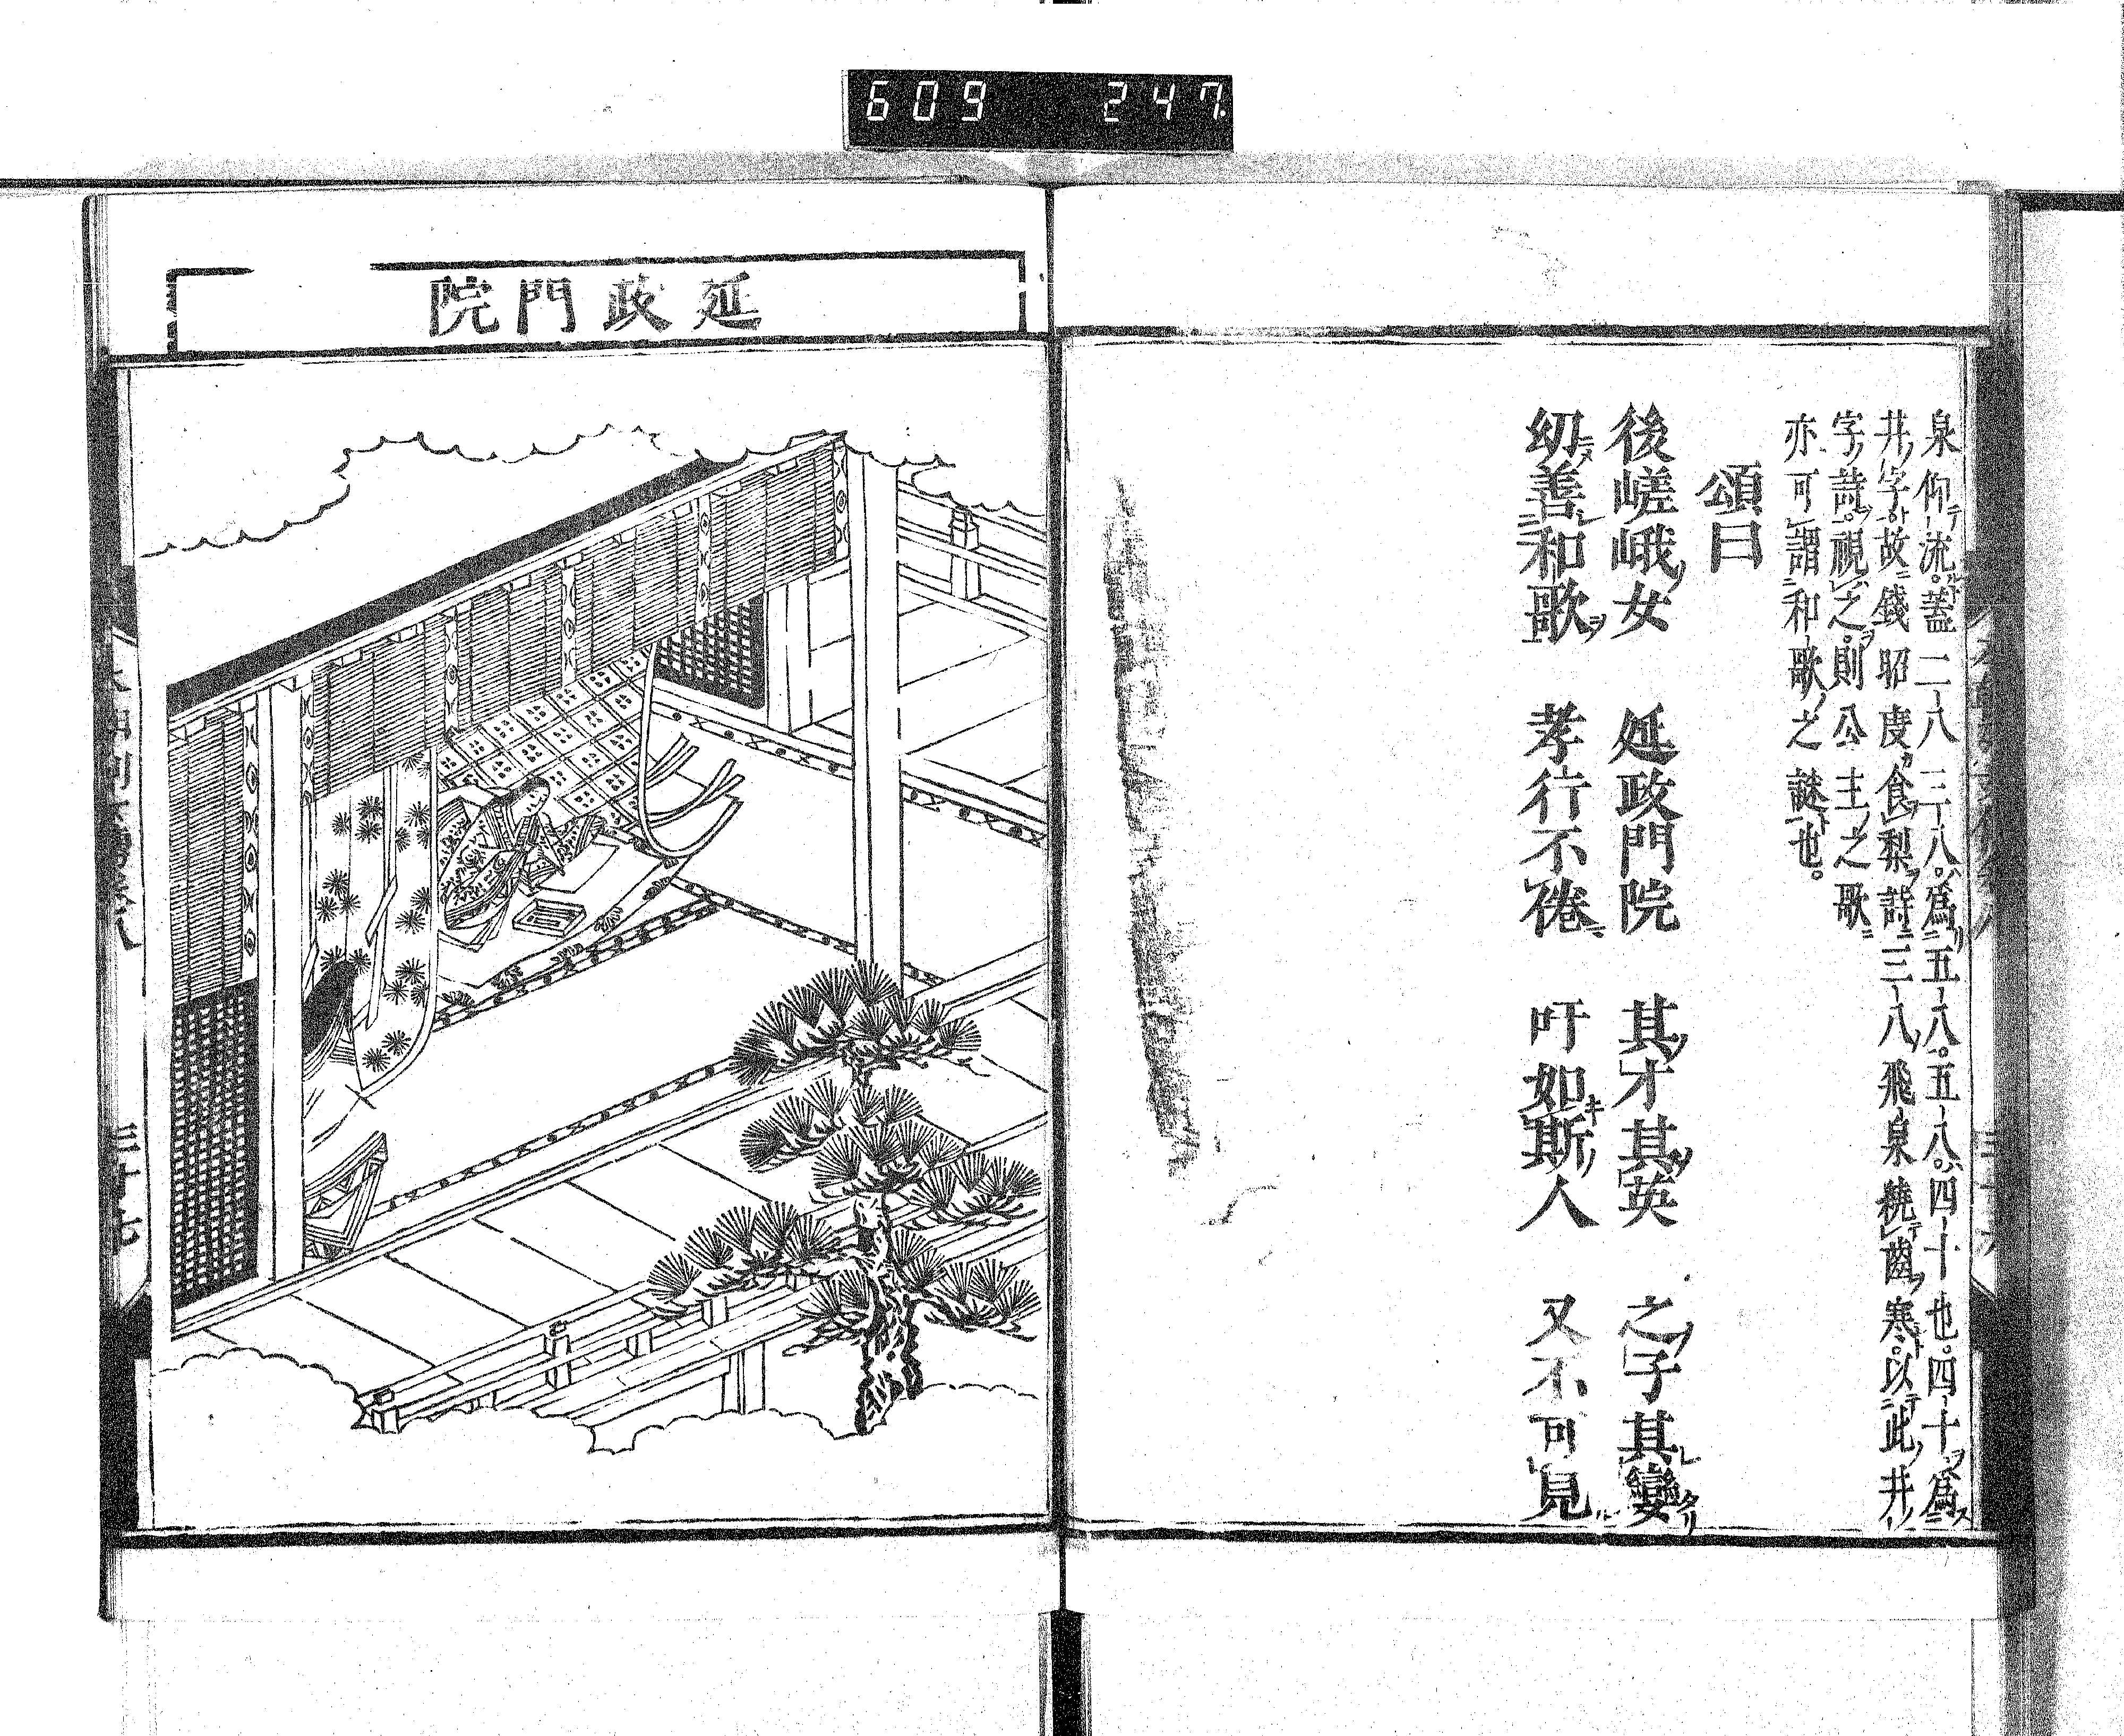 609 247
泉仰流。蓋二八三八。爲五八。五八。四十也。四十爲
井字故錢昭度食梨詩三八飛泉繞齒寒。以此井
字詩。視之。則公主之歌
亦可謂和歌之謎也。
頌曰
後嵯峨女 延政門院 其才其英 之子其孌
幼善和歌 孝行不倦 吁如斯人 又不可見
延政門院
三十七